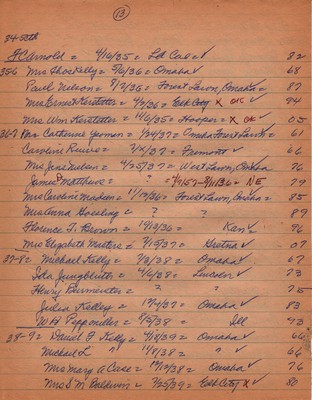 (13)
34-35th
F C Arnold = 4/16/35 = Ld Cal ✓ 82
35-6 Mrs Thos Kelly = 5/16/36 = Omaha ✓ 68
Paul Nelson = 8/13/36 = Forest Lawn, Omaha = 87
Mrs Ernest Kerstetter = 4/9/36 = Elk City X OK ✓ 74
Mrs Wm Kerstetter = 11/5/36 = Hooper = X OK ✓ 05
36-7 Catherine Yeoman = 2/24/37 = Omaha Forest Lawn ✓ = 61
Caroline = 3/5/37 = Fremont ✓ 66
Mrs Jane = 4/25/37 = West Lawn, Omaha 76
James P Matthews = ? = NE 79
Mrs Caroline Madsen = 11/17/36 = Forest Lawn, Omaha = 85
Mrs Anna Gosling = ? ? 89
Florence F. Brown = 12/18/36 = Kan ✓ 76
Mrs Elizabeth Masters = 9/15/37 = Gretna ✓ 07
37-8 = Michael Kelly = 7/3/38 = Omaha ✓ 67
Ida Jungbluth = 4/6/38 = Lincoln ✓ 73
Henry Burmester = ? " 75
Julia Kelley = 12/4/37 = Omaha ✓ 83
W H Peppmiller = 8/15/38 = Ill 93
38-9 = Daniel F Kelly = 4/18/39 = Omaha ✓ 66
Michael L " 11/8/38 = " ✓ 66
Mrs Mary A Case = 12/10/38 = Omaha ✓ 76
Mrs S M Baldwin = 2/25/39 = Elk City X ✓ 80